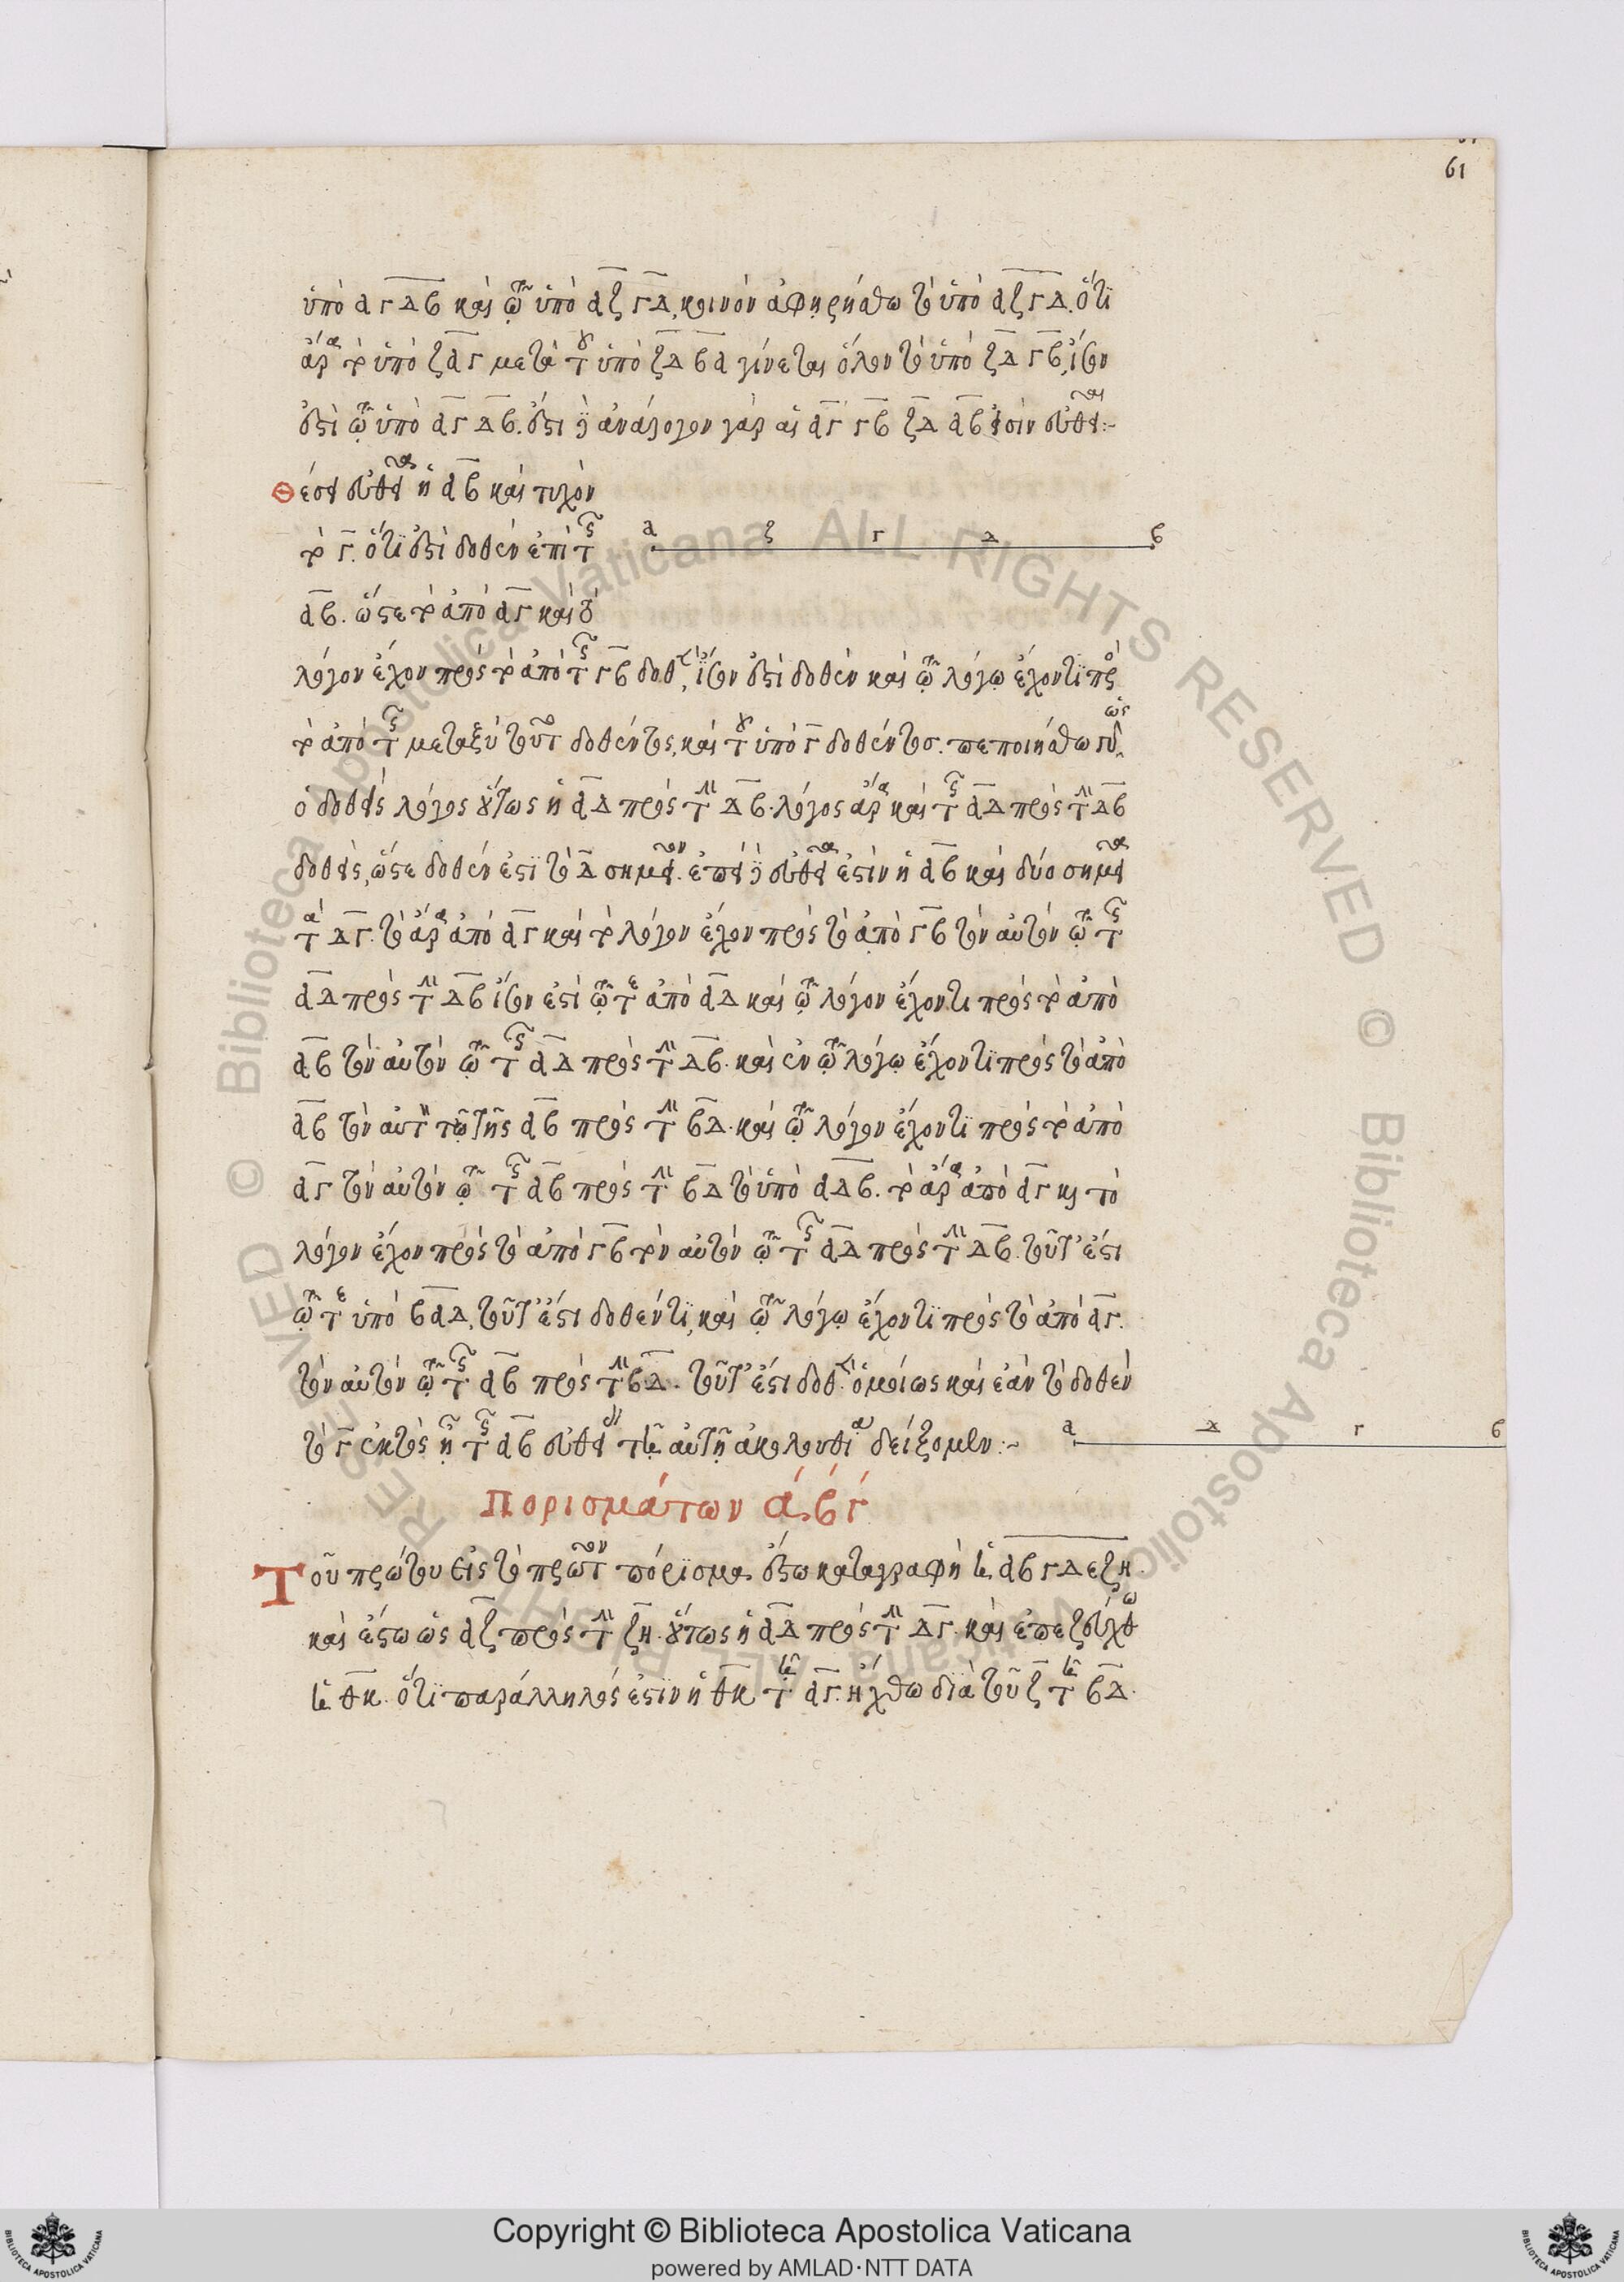 61
ὑπὸ αγ δβ καὶ τῷ ὑπὸ αζ γδ, κοινὸν ἀφῃρήσθω τὸ ὑπὸ αζ γδ. ὅτι
ἄρα τὸ ὑπὸ ζα γ μετὰ τοῦ ὑπὸ ζδ βα γίνεται ὅλον τὸ ὑπὸ ζδ γβ, ἴσον
ἐστὶ τῷ ὑπὸ αγ δβ. ἔστι ἀνάλογον γὰρ αἱ αγ γβ ζδ δβ εἰσὶν εὐθεῖαι:-
Θέσει εὐθεῖα ἡ αβ καὶ τυχὸν
τὸ γ. ὅτι ἐστὶ δοθὲν ἐπὶ τῆς
αβ. ὥστε τὸ ἀπὸ αγ καὶ τὸ
α ζ γ δ β
λόγον ἔχον πρὸς τὸ ἀπὸ τῆς γβ δοθέντα, ἴσον ἐστὶ δοθὲν καὶ τῷ λόγῳ ἔχοντι πρὸς
τὸ ἀπὸ τῆς μεταξὺ τούτου δοθέντος, καὶ τοῦ ὑπὸ γ δοθέντος. πεποιήσθω γὰρ ὡς
ὁ δοθεὶς λόγος οὕτως ἡ αδ πρὸς τὴν δβ. λόγος ἄρα καὶ τῆς αδ πρὸς τὴν δβ
δοθείς, ὥστε δοθέν ἐστι τὸ δ σημεῖον. ἐπεὶ εὐθεῖά ἐστιν ἡ αβ καὶ δύο σημεῖα
τὰ δγ. τὸ ἄρα ἀπὸ αγ καὶ τὸ λόγον ἔχον πρὸς τὸ ἀπὸ γβ τὸν αὐτὸν τῷ τῆς
αδ πρὸς τὴν δβ ἴσον ἐστὶ τῷ τε ἀπὸ αδ καὶ τῷ λόγον ἔχοντι πρὸς τὸ ἀπὸ
αβ τὸν αὐτὸν τῷ τῆς αδ πρὸς τὴν δβ. καὶ ἐν τῷ λόγῳ ἔχοντι πρὸς τὸ ἀπὸ
αβ τὸν αὐτὸν τῷ τῆς αβ πρὸς τὴν βδ. καὶ τῷ λόγον ἔχοντι πρὸς τὸ ἀπὸ
αγ τὸν αὐτὸν τῷ τῆς αβ πρὸς τὴν βδ τὸ ὑπὸ αδβ. τὸ ἄρα ἀπὸ αγ καὶ τὸ
λόγον ἔχον πρὸς τὸ ἀπὸ γβ τὸν αὐτὸν τῷ τῆς αδ πρὸς τὴν δβ. τοῦτ' ἔστι
τῷ τε ὑπὸ βαδ, τοῦτ' ἔστι δοθέντι, καὶ τῷ λόγῳ ἔχοντι πρὸς τὸ ἀπὸ αγ.
τὸν αὐτὸν τῷ τῆς αβ πρὸς τὴν βδ. τοῦτ' ἔστι δοθέντα. ὁμοίως καὶ ἐὰν τὸ δοθὲν
τὸ γ ἐκτὸς ᾖ τῆς αβ εὐθείας τῇ αὐτῇ ἀκολουθίᾳ δείξομεν:~
α δ γ β
Πορισμάτων ά. β́ γ́
Τοῦ πρώτου εἰς τὸ πρῶτον πόρισμα. ἔστω καταγραφὴ ἡ αβγδεζη.
καὶ ἔστω ὡς αζ πρὸς τὴν ζη. οὕτως ἡ αδ πρὸς τὴν δγ. καὶ ἐπεζεύχθω
ἡ θκ. ὅτι παράλληλός ἐστιν ἡ θκ τῇ αγ. ἤχθω διὰ τοῦ ζ τῇ βδ.